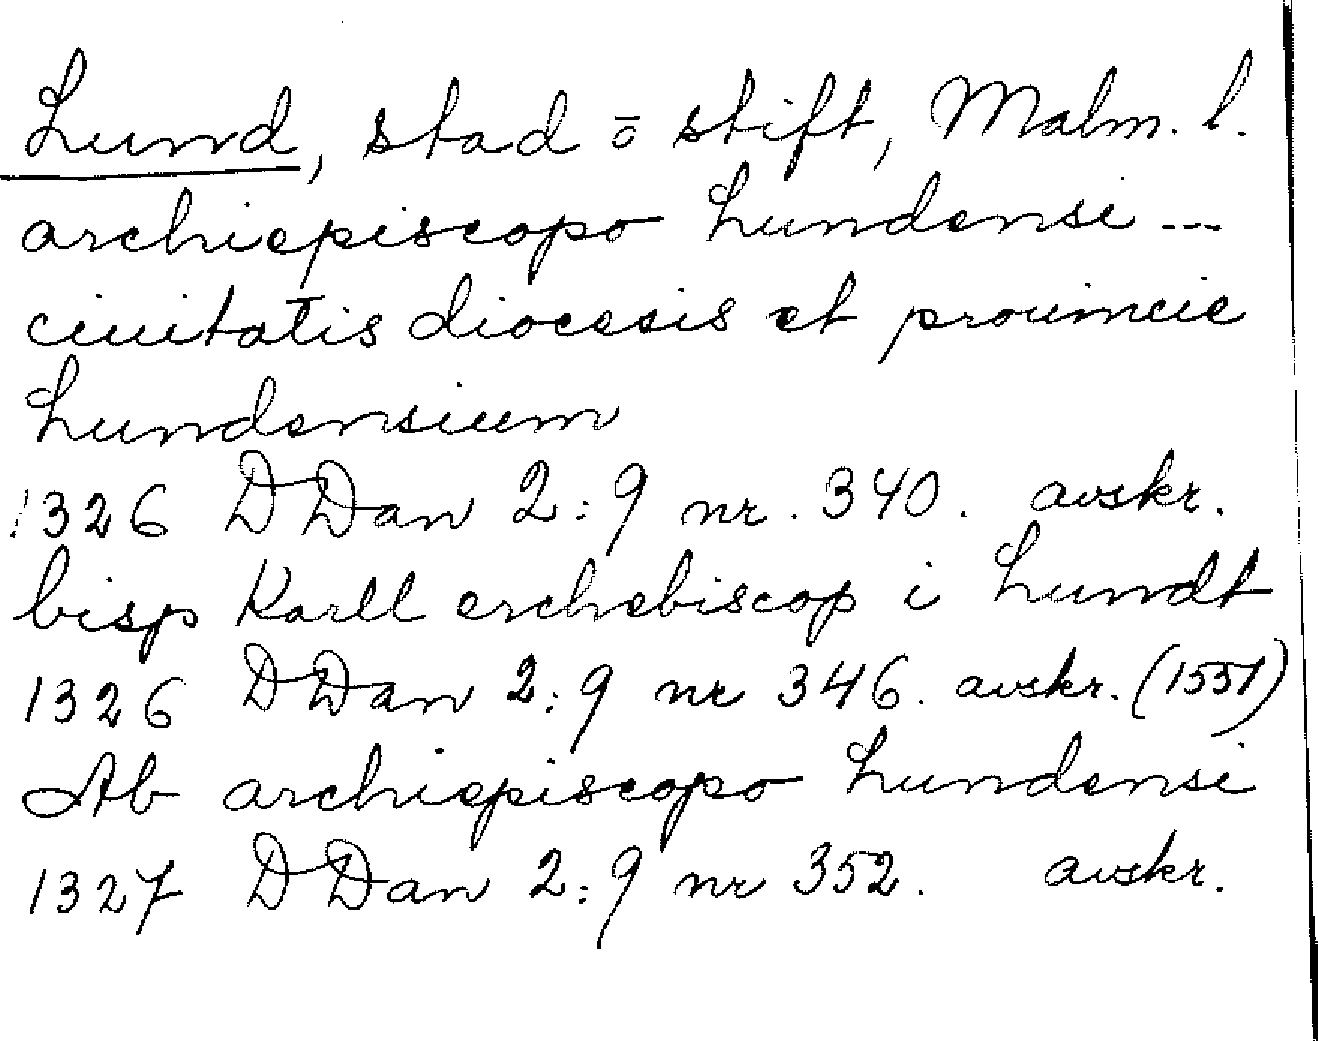 Lund, stad ō stift, Malm. l.
archiepiscopo Lundensi ---
ciuitatis diocesis et prouincie
Lundensium
1326 DDan 2:9 nr. 340. avskr.
bisp Karll erchebiscop i Lundt
1326 DDan 2:9 nr 346. avskr. (1551)
Ab archiepiscopo Lundensi
1327 DDan 2:9 nr 352. avskr.